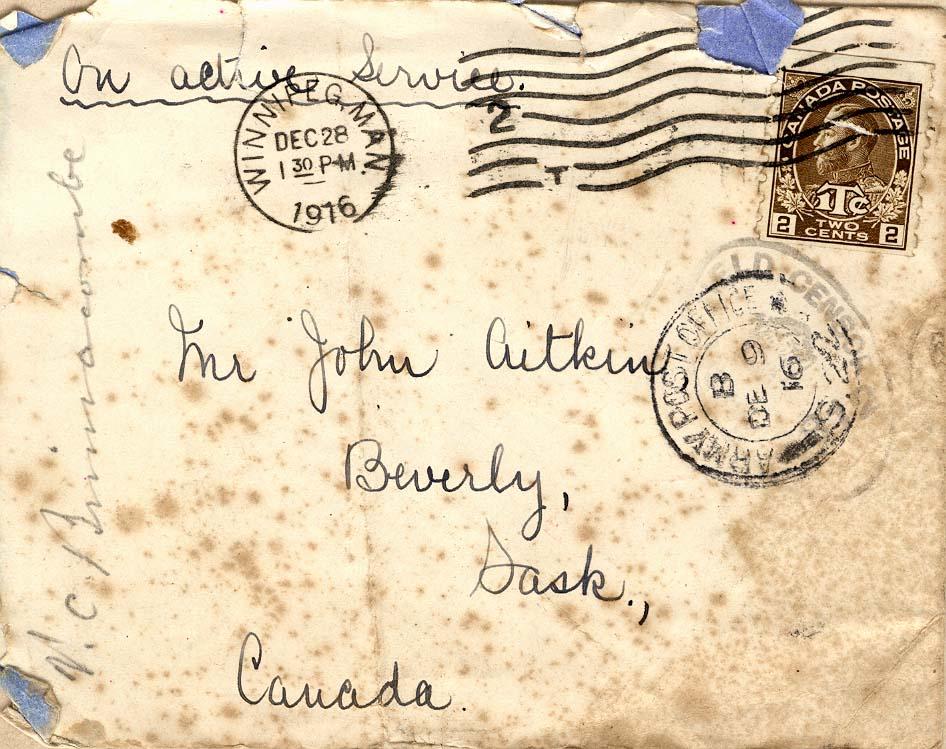 On active Service.
WINNIPEG MAN
DEC 28
1 30 P.M.
1916
2
T
CANADA POSTAGE
1Tc
2 TWO 2
CENTS
FIELD CENSOR
ARMY POST OFFICE
B
DE 9
16
Mr John Aitkin
Beverly,
Sask.,
Canada.
W. C.